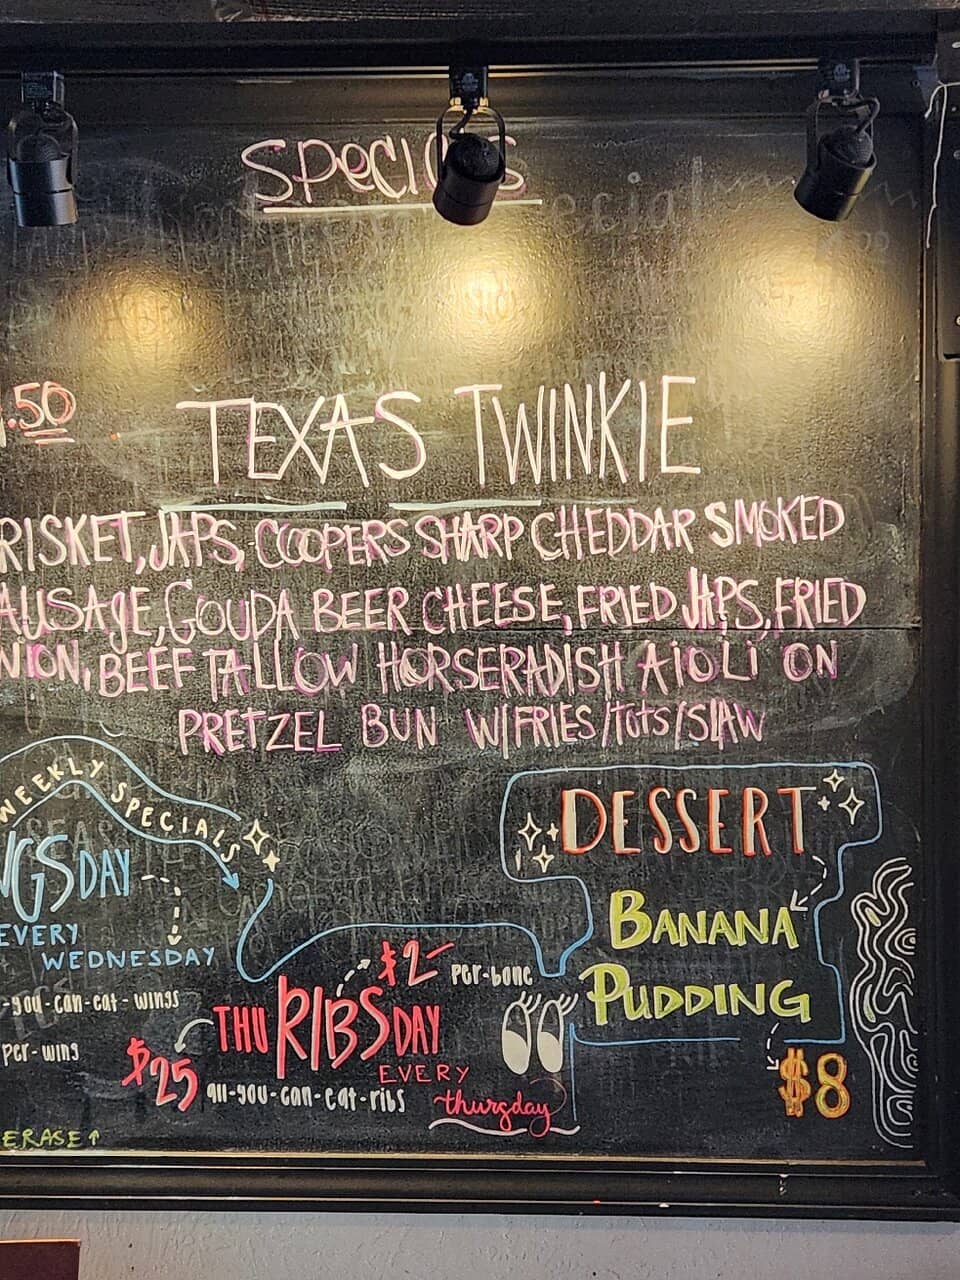 Specials
.50
TEXAS TWINKIE
RISKET, JAPS, COOPERS SHARP CHEDDAR SMOKED
AUSAGE, GOUDA BEER CHEESE, FRIED JAPS, FRIED
NION, BEEF TALLOW HORSERADISH AIOLI ON
PRETZEL BUN W/FRIES/TOTS/SLAW
WEEKLY SPECIALS
NGSDAY
EVERY
WEDNESDAY
-you-can-eat-wings
per-wing
$2 per-bone
THURIBSDAY
EVERY
thursday
$25 all-you-can-eat-ribs
ERASE
DESSERT
BANANA
PUDDING
$8